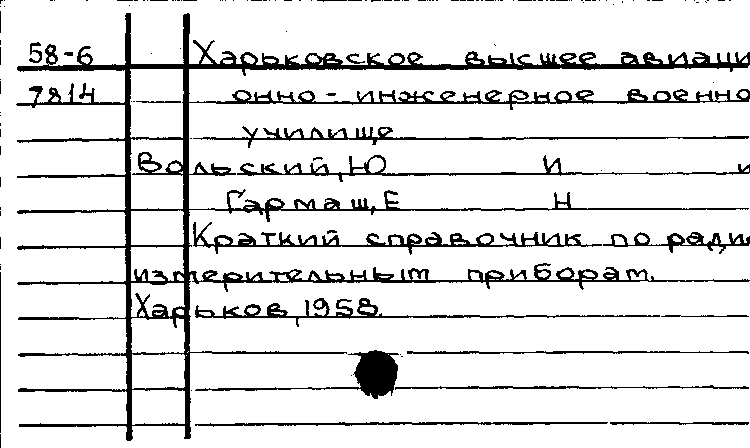 58-6 Харьковское высшее авиаци
7814 онно-инженерное военно
училище
Вольский, Ю И и
Гармаш, Е Н
Краткий справочник по ради
измерительным приборам.
Харьков, 1958.